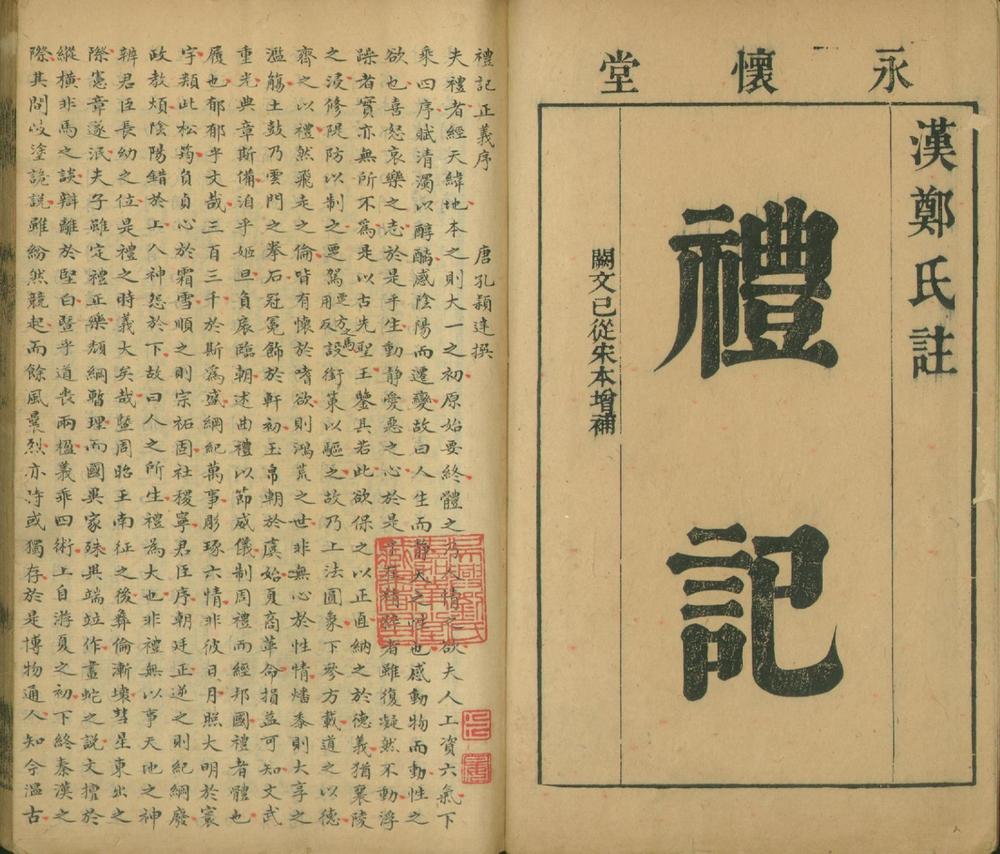 永懷堂
漢鄭氏註
禮記
闕文已從宋本增補
禮記正義序　唐孔穎達撰
夫禮者經天緯地本之則大一之初原始要終體之乃人情之欲夫人上資六氣下
乘四序賦清濁以醇醨感陰陽而遷變故曰人生而靜天之性也感動物而動性之
欲也喜怒哀樂之志於是乎生動靜愛惡之心於是乎在精粹者雖復凝然不動浮
躁者實亦無所不為是以古先聖王鑒其若此欲保之以正直納之於德義猶襄陵
之浸修隄防以制之覂駕覂方用反馬設銜策以驅之故乃上法圓象下參方載道之以德
齊之以禮然飛走之倫皆有懷於嗜欲則鴻荒之世非無心於性情燔黍則大享之
濫觴土鼓乃雲門之拳石冠冕飾於軒初玉帛朝於虞始夏商革命損益可知文武
重光典章斯備洎乎姬旦負扆臨朝述曲禮以節威儀制周禮而經邦國禮者體也
履也郁郁乎文哉三百三千於斯為盛綱紀萬事彫琢六情非彼日月照大明於寰
宇類此松筠負貞心於霜雪順之則宗祏固社稷寧君臣序朝廷正逆之則紀綱廢
政教煩陰陽錯於上人神怨於下故曰人之所生禮為大也非禮無以事天地之神
辨君臣長幼之位是禮之時義大矣哉暨周昭王南征之後彝倫漸壞彗星東出之
際憲章遂泯夫子雖定禮正樂頹綱暫理而國異家殊異端竝作畫蛇之說文擅於
縱橫非馬之談辯離於堅白暨乎道喪兩楹義乖四術上自游夏之初下終秦漢之
際其間岐塗詭說雖紛然競起而餘風曩烈亦時或獨存於是博物通人知今溫古